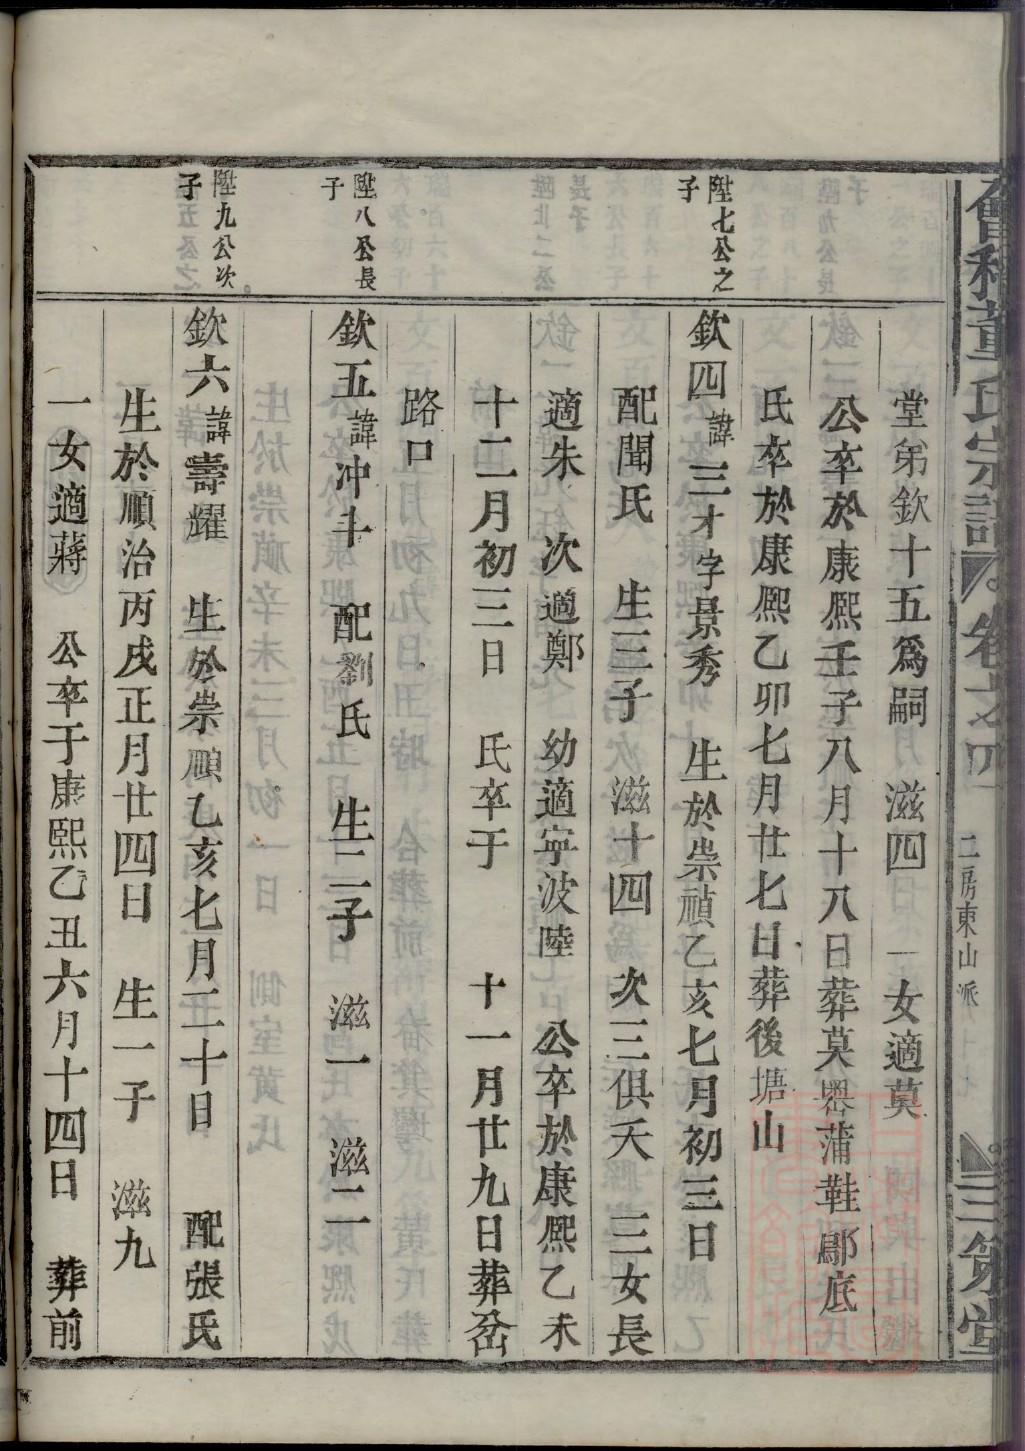 會稽董氏宗譜 卷之四 二房東山派 三策堂
堂弟欽十五爲嗣 滋四 一女適莫
公卒於康熙壬子八月十八日葬莫嶴蒲鞋鄬底
氏卒於康熙乙卯七月廿七日葬後塘山
陞七公之
子
欽四諱三才字景秀 生於崇禎乙亥七月初三日
配聞氏 生三子 滋十四 次三俱夭 三女長
適朱 次適鄭 幼適寧波陸 公卒於康熙乙未
十二月初三日 氏卒于 十一月廿九日葬岔
路口
陞八公長
子
欽五諱冲斗 配劉氏 生二子 滋一 滋二
陞九公次
子
欽六諱壽耀 生於崇禎乙亥七月二十日 配張氏
生於順治丙戌正月廿四日 生一子 滋九
一女適蔣 公卒于康熙乙丑六月十四日 葬前